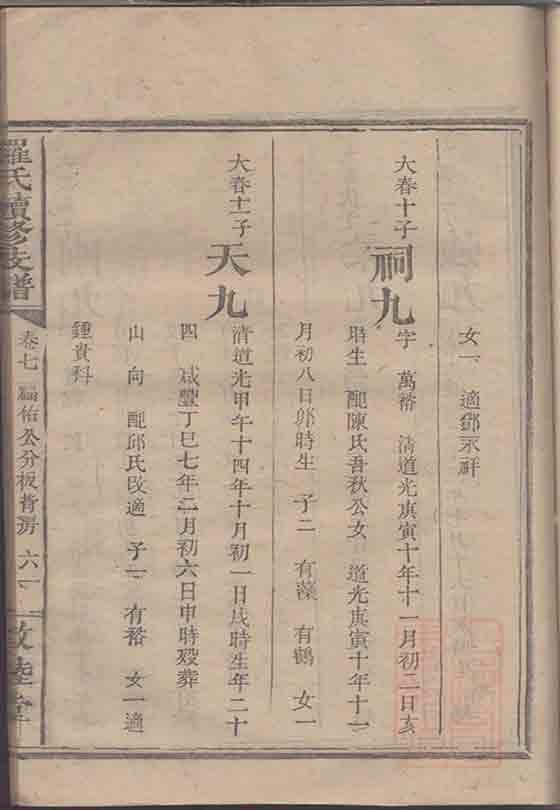 女一　適鄧永祥
大春十子　祠九　字　萬裕　清道光庚寅十年十一月初二日亥
時生　配陳氏吾秋公女　道光庚寅十年十一
月初八日卯時生　子二　有藻　有鶴　女一
大春十一子　天九　清道光甲午十四年十月初一日戌時生年二十
四　咸豐丁巳七年二月初六日申時歿葬
山　向　配邱氏改適　子一　有裕　女一適
鍾貴科
羅氏續修支譜　卷七　福佑公分板背房　六一　敦睦堂